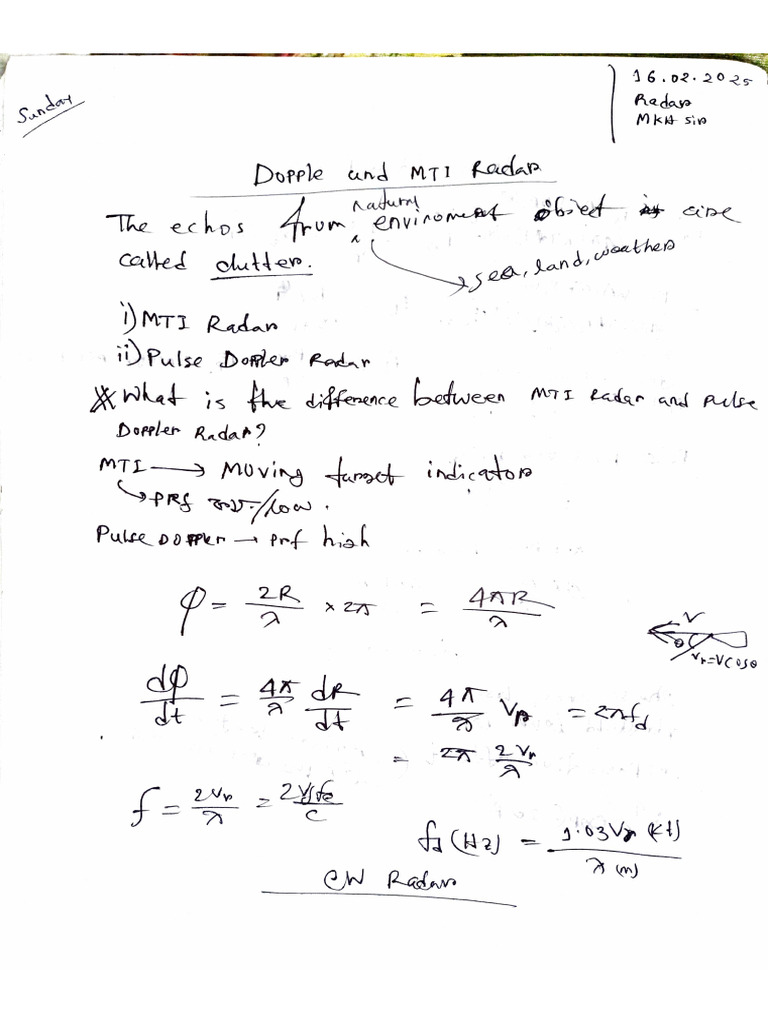 Sunday
16.02.2025
Radar
MKH sir
Dopple and MTI Radar
The echos from natural enviroment object is are
called clutter.
sea, land, weather
i) MTI Radar
ii) Pulse Doppler Radar
* What is the difference between MTI Radar and pulse
Doppler Radar?
MTI → Moving target indicator
→ PRf /low.
Pulse Doppler → prf high
φ = 2R/λ × 2π = 4πR/λ
V
θ
Vr = V cos θ
dφ/dt = 4π/λ dR/dt = 4π/λ Vr = 2πfd
= 2π 2Vr/λ
f = 2Vr/λ = 2Vrfo/c
fd (Hz) = 1.03Vr (kt)/λ (m)
CW Radar